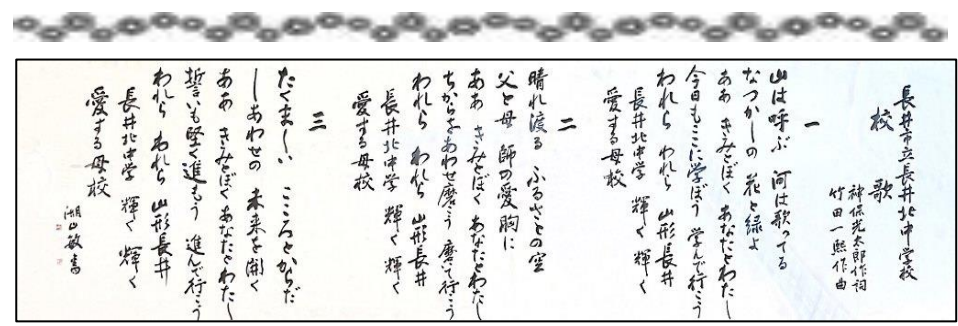 長井市立長井北中学校
校歌
神保光太郎作詞
竹田一熙作曲
一
山は呼ぶ 河は歌ってる
なつかしの 花と緑よ
ああ きみとぼく あなたとわたし
今日もここに学ぼう 学んで行こう
われら われら 山形長井
長井北中学 輝く 輝く
愛する母校
二
晴れ渡る ふるさとの空
父と母 師の愛胸に
ああ きみとぼく あなたとわたし
ちからをあわせ磨こう 磨いて行こう
われら われら 山形長井
長井北中学 輝く 輝く
愛する母校
三
たくましい こころとからだ
しあわせの 未来を開く
ああ きみとぼく あなたとわたし
誓いも堅く進もう 進んで行こう
われら われら 山形長井
長井北中学 輝く 輝く
愛する母校
湖山敏書